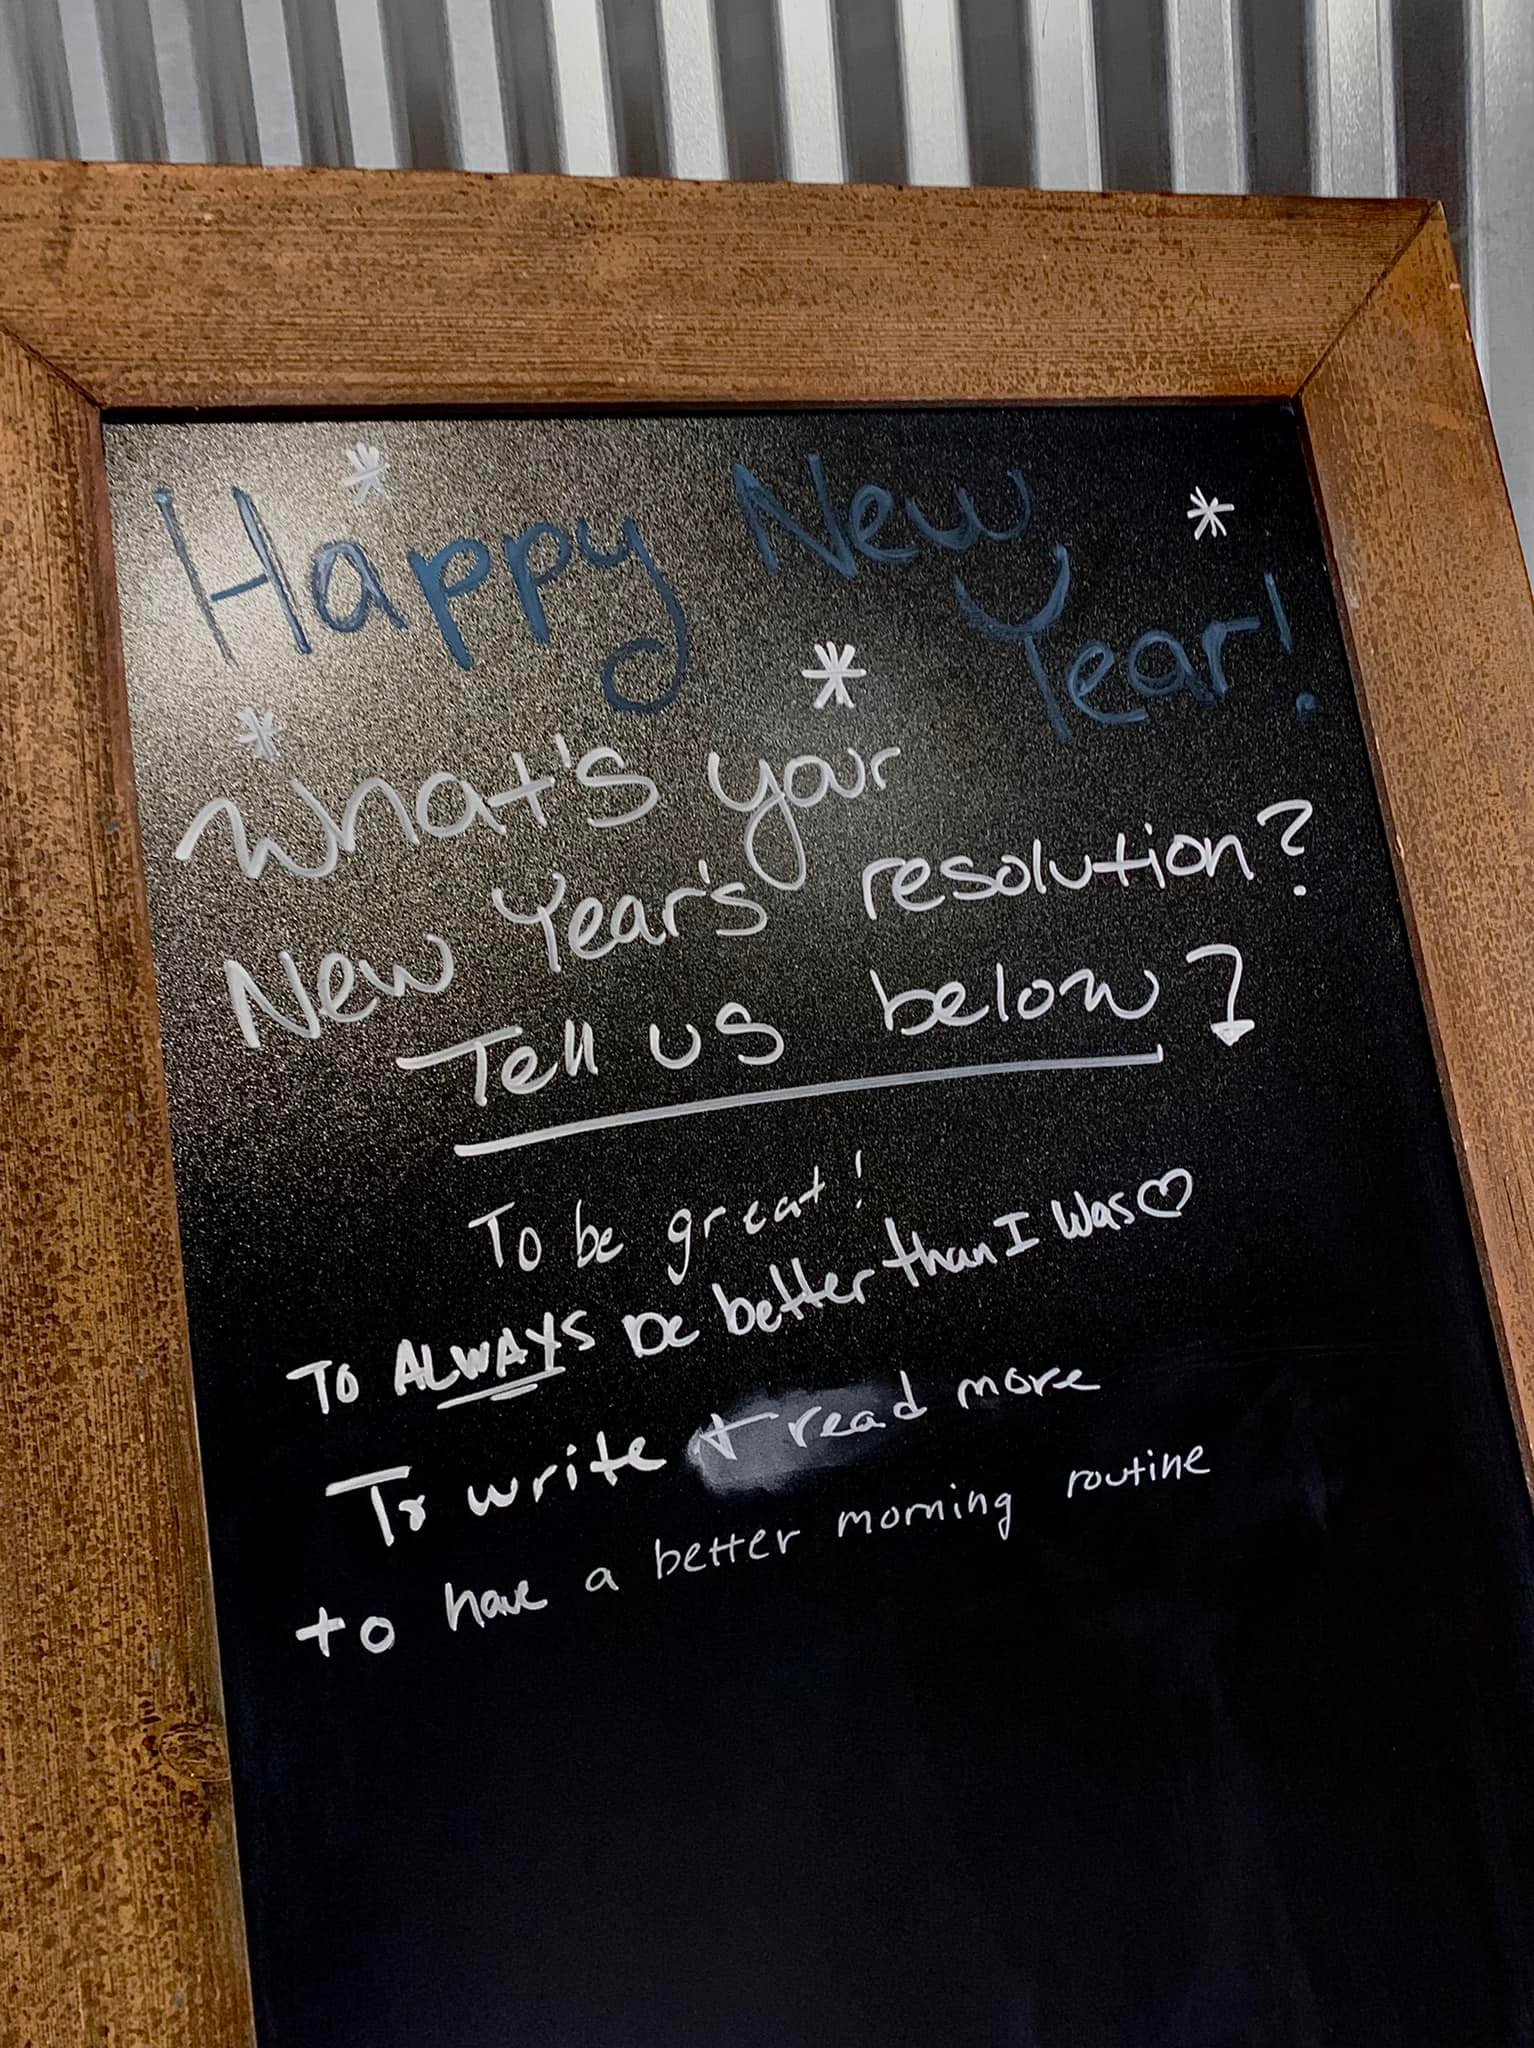 Happy New
Year!
What's your
New Year's resolution?
Tell us below
To be great!
To ALWAYS be better than I was♡
To write + read more
to have a better morning routine